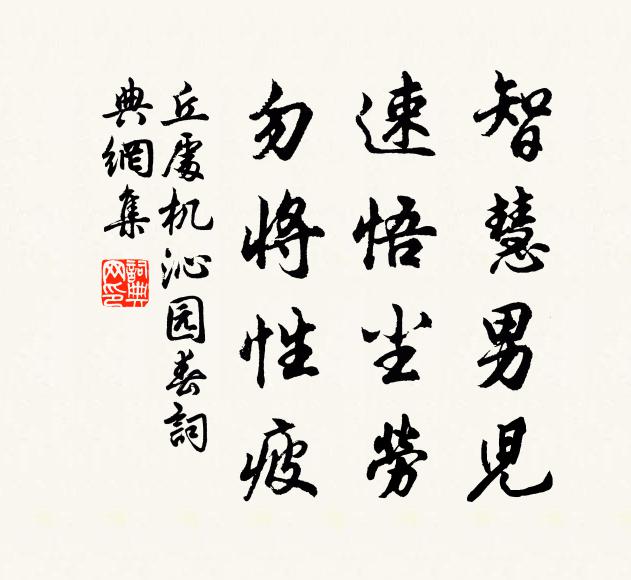 智慧男児
速悟尘勞
勿將性疲
丘處机沁园春詞
典網集
詞典网印